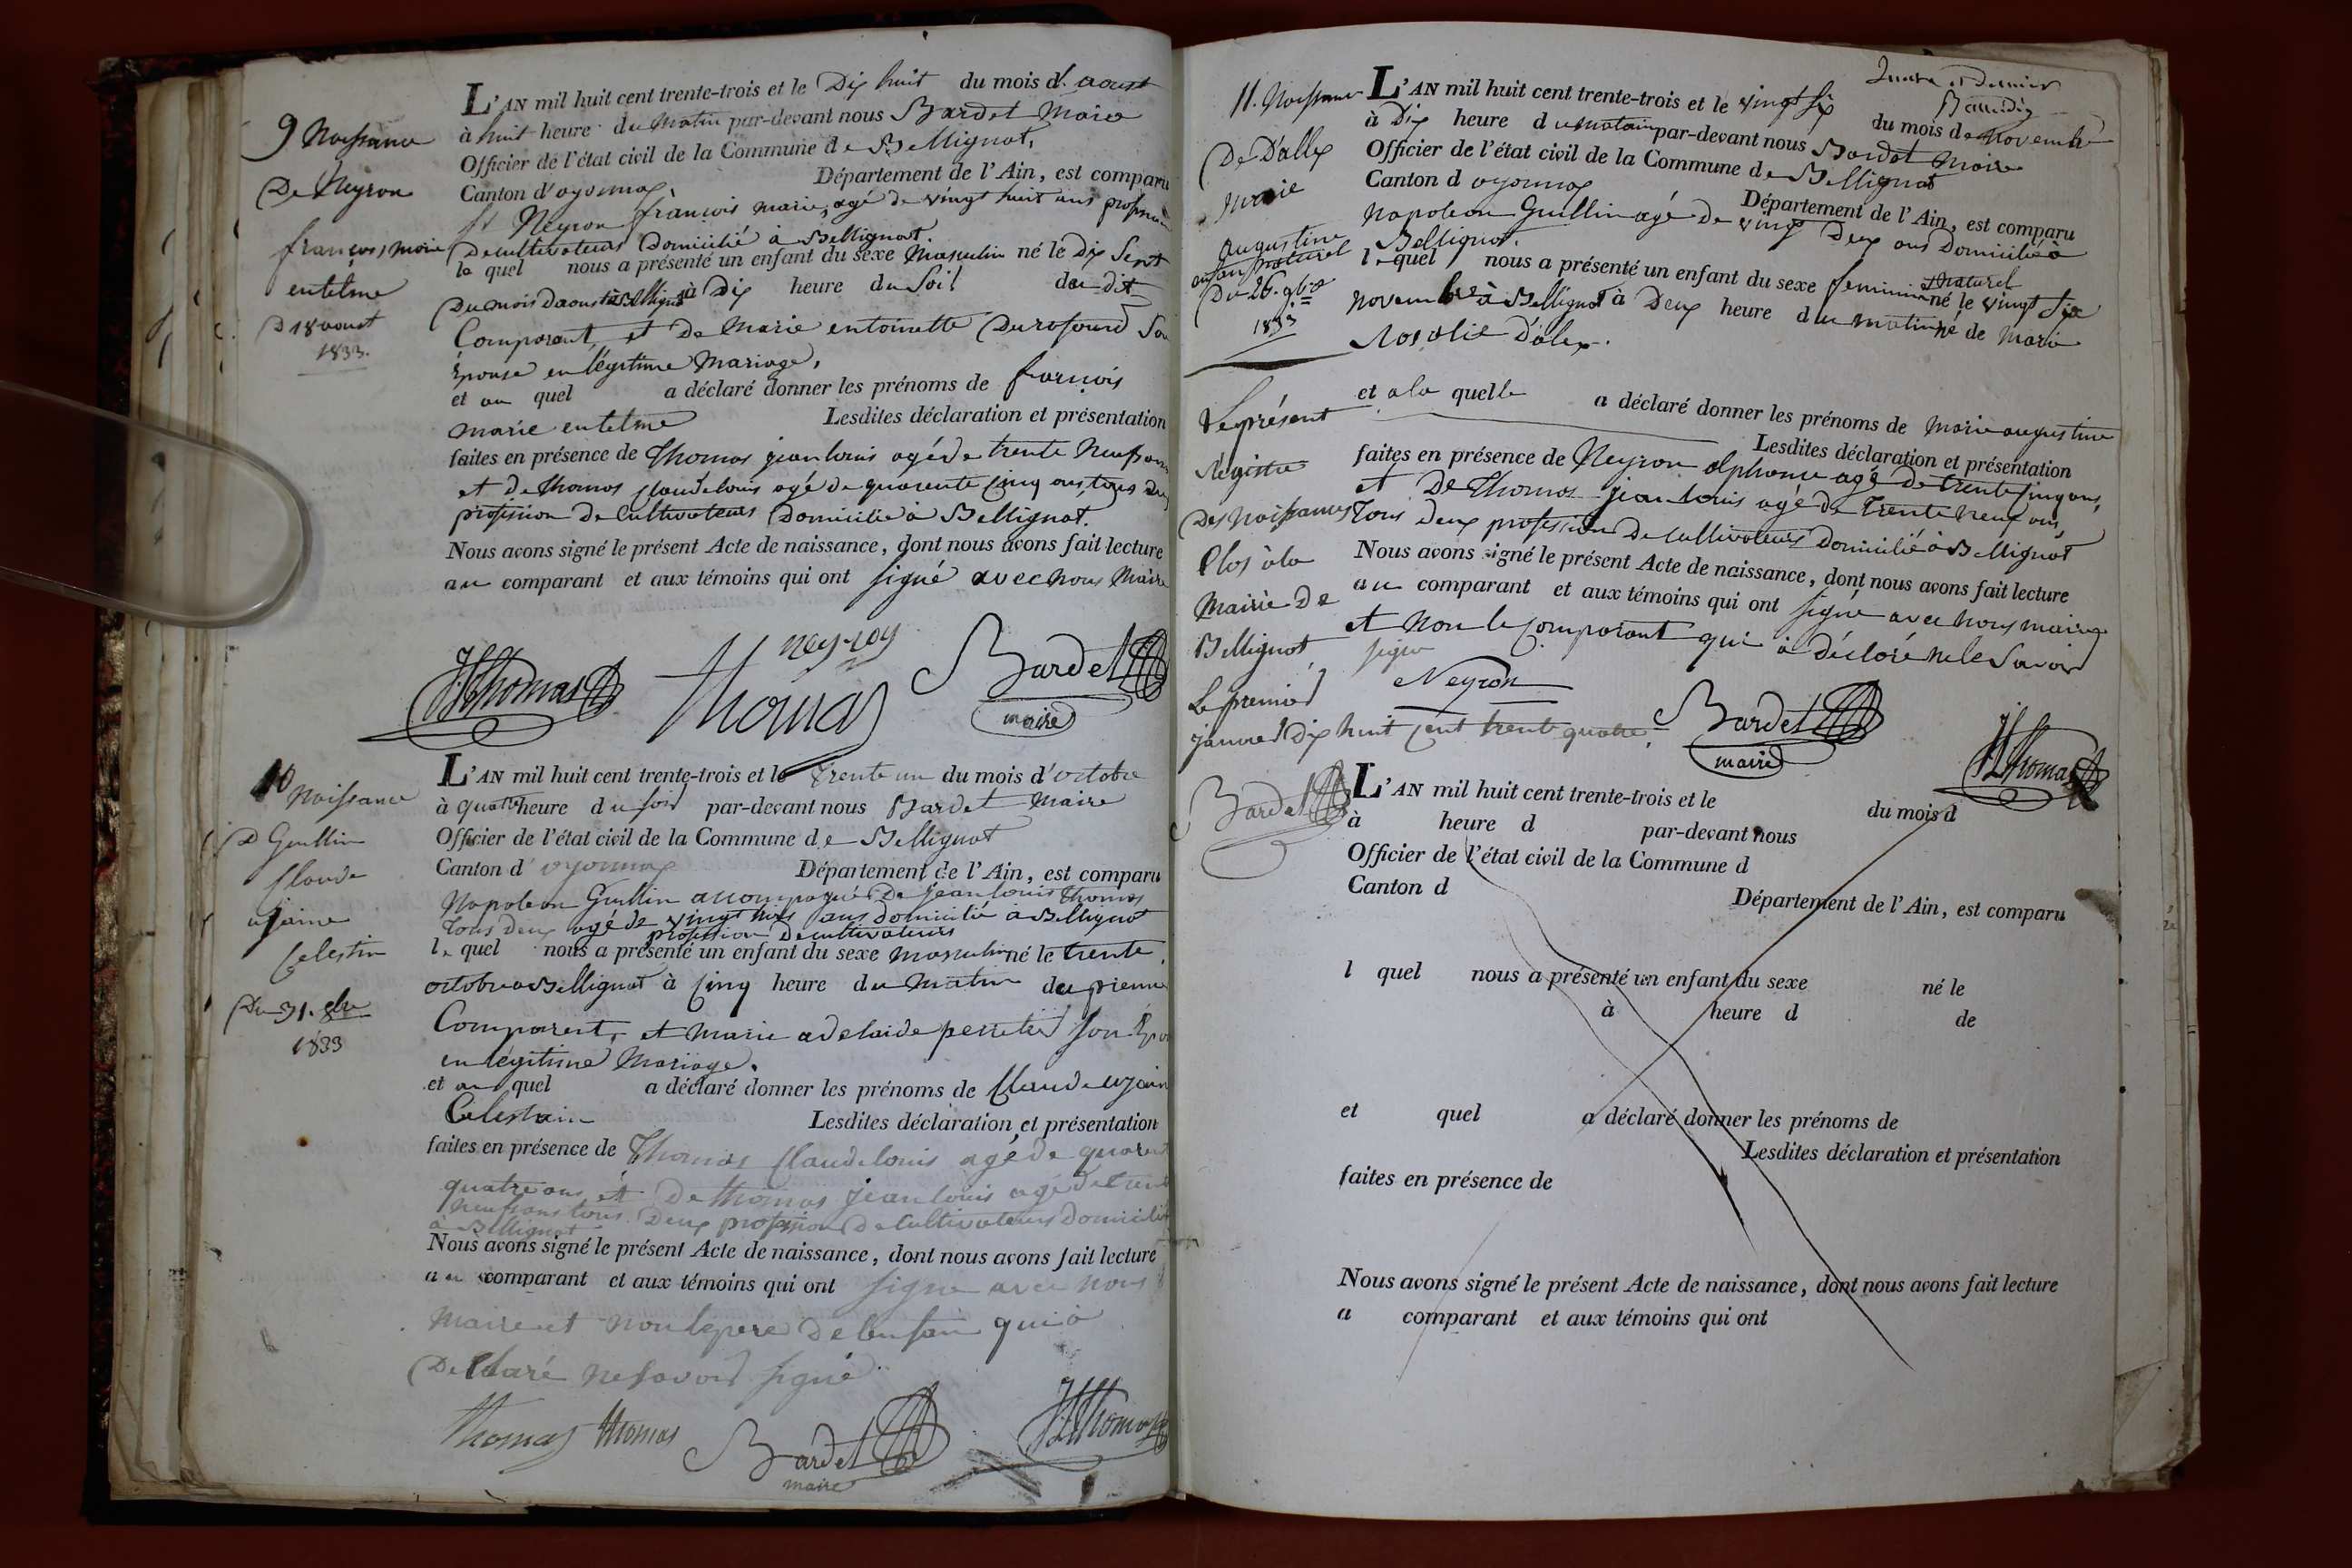 9 Naissance
De Neyron
françois marie
entelme
D 18 aoust
1833.
L'AN mil huit cent trente-trois et le Dix huit du mois d. aoust
à huit heure du Matin par-devant nous Bardet Maire
Officier de l'état civil de la Commune de Bellignat,
Canton d'oyonnax, Département de l'Ain, est comparu
st Neyron françois marie, agé de vingt huit ans profession
De cultivateurs Domicilié à Bellignat.
le quel nous a présenté un enfant du sexe Masculin né le Dix Sept
Du mois Daoust à Bellignat à Dix heure du Soir du dit
Comparant, et De Marie entoinette Durafourd Son
Epouse en légitime Mariage,
et au quel a déclaré donner les prénoms de françois
marie entelme Lesdites déclaration et présentation
faites en présence de Thomas jean louis agé de trente Neuf ans
et de thomas claude louis agé de quarente Cinq ans, tous deux
profession De Cultivateurs Domicilié à Bellignat.
Nous avons signé le présent Acte de naissance, dont nous avons fait lecture
au comparant et aux témoins qui ont signé avec nous Maire
JLThomas Thomas neyron Bardet
maire
10 Naissance
D Guillin
Claude
ujaine
Celestin
Du 31. 8bre
1833
L'AN mil huit cent trente-trois et le Trente un du mois d'octobre
à quatre heure du soir par-devant nous Bardet Maire
Officier de l'état civil de la Commune de Bellignat
Canton d'oyonnax Département de l'Ain, est comparu
Napoleon Guillin accompagné De jean louis thomas
Tous deux agé de vingt trois ans domicilié à Bellignat
profession De cultivateurs
le quel nous a présenté un enfant du sexe masculin né le trente
octobre a Bellignat à Cinq heure du Matin du premier
Comparent, et marie adelaide perretier son Epouse
en légitime Mariage.
et au quel a déclaré donner les prénoms de Claude ujain
Celestain Lesdites déclaration et présentation
faites en présence de Thomas Claude louis agé de quarente
quatre ans et De thomas jean louis agé de trente
Neuf ans tous Deux profession De Cultivateurs Domicilié
à Bellignat
Nous avons signé le présent Acte de naissance, dont nous avons fait lecture
au comparant et aux témoins qui ont signe avec nous
Maire et non le pere De lenfant qui à
Declaré ne savoir signé
Thomas thomas Bardet JLThomas
maire
11. Naissance
De D'allex
Marie
augustine
enfan naturel
Du 26. 9bre
1833
L'AN mil huit cent trente-trois et le vingt six du mois de Novembre
à Dix heure du matain par-devant nous Bardet Maire
Officier de l'état civil de la Commune de Bellignat
Canton d oyonnax Département de l'Ain, est comparu
Napoleon Guillin agé de vingt Deux ans Domicilié à
Bellignat.
lequel nous a présenté un enfant du sexe feminin naturel né le vingt Six
novembre à Bellignat à Deux heure du matin né de Marie
Rosalie D'alex.
et a la quelle a déclaré donner les prénoms de Marie augustine
Lesdites déclaration et présentation
faites en présence de Neyron alphonse agé De trente Cinq ans,
et De Thomas jean louis agé de Trente neuf ans
Tous deux profession De cultivateurs Domicilié à Bellignat
Nous avons signé le présent Acte de naissance, dont nous avons fait lecture
au comparant et aux témoins qui ont signé avec nous maire
et Non le Comparant qui à déclaré ne le Savoir
signe
Neyron Bardet JLThomas
maire
Le présent
Registre
Des Naissances
Clos à la
Mairie De
Bellignat
Le premier
janvier Dix huit Cent trente quatre.
Bardet
L'AN mil huit cent trente-trois et le du mois d
à heure d par-devant nous
Officier de l'état civil de la Commune d
Canton d Département de l'Ain, est comparu
l quel nous a présenté un enfant du sexe né le
à heure d de
et quel a déclaré donner les prénoms de
Lesdites déclaration et présentation
faites en présence de
Nous avons signé le présent Acte de naissance, dont nous avons fait lecture
a comparant et aux témoins qui ont